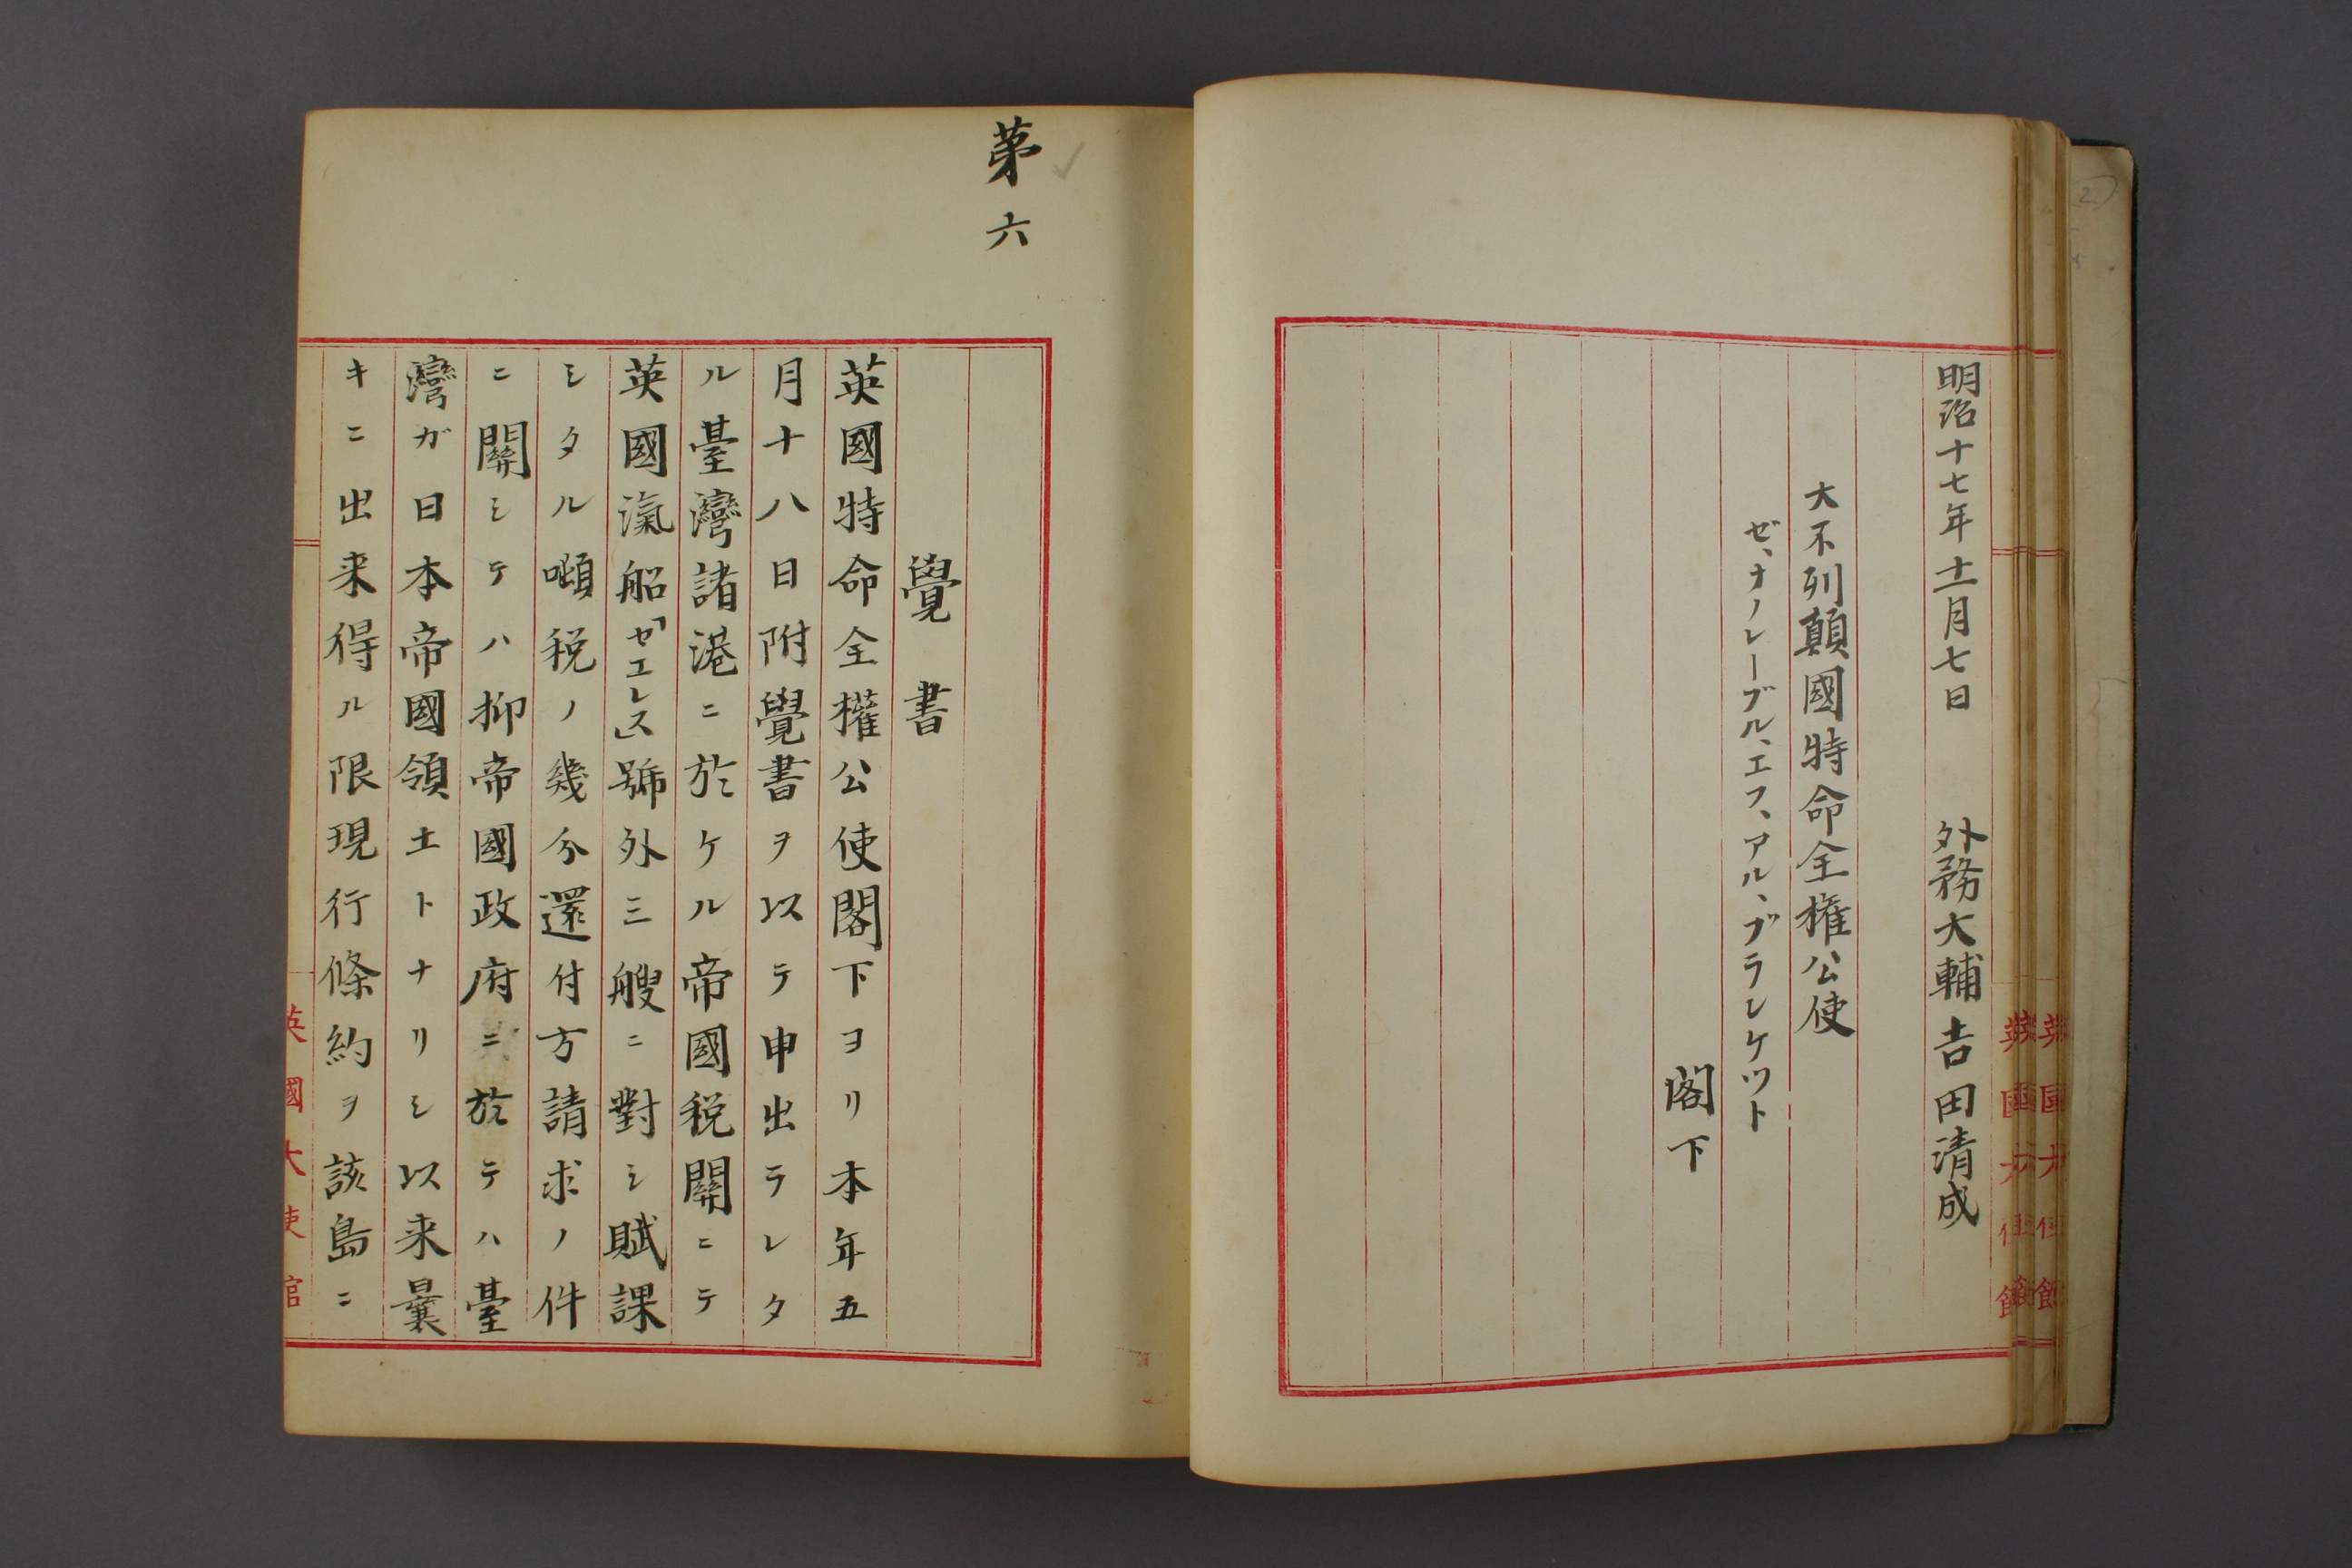 明治十七年十一月七日　外務大輔吉田清成
大不列顛國特命全権公使
ゼ、オノレーブル、エフ、アル、プランケツト
閣下
第六
覺書
英國特命全權公使閣下ヨリ本年五
月十八日附覺書ヲ以テ申出ラレタ
ル臺灣諸港ニ於ケル帝國税關ニテ
英國滊船「ゼエレス」號外三艘ニ對シ賦課
シタル噸税ノ幾分還付方請求ノ件
ニ關シテハ抑帝國政府ニ於テハ臺
灣ガ日本帝國領土トナリシ以来曩
キニ出来得ル限現行條約ヲ該島ニ
英國大使館